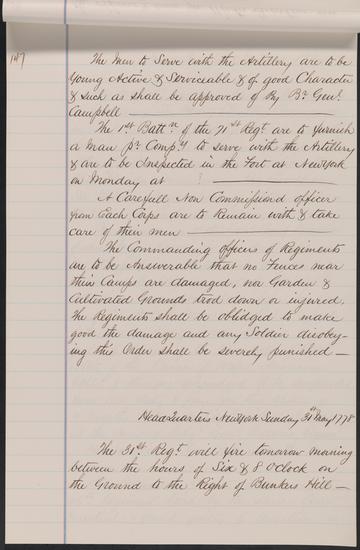 147
The Men to Serve with the Artillery are to be
Young Active & Serviceable & of good Character
& such as shall be approved of By Br. Genl.
Campbell
The 1st Battn of the 71st Regt. are to furnish
a Man pr. Compy to serve with the Artillery
& are to be Inspected in the Fort at New York
on Monday at ?
A Carefull Non Commissiond officer
from Each Corps are to Remain with & take
care of their men
The Commanding officers of Regiments
are to be Answerable that no Fences near
their Camps are damaged, nor Garden &
Cultivated Grounds trod down or injured.
The Regiments shall be oblidged to make
good the damage and any Soldier disobey-
ing this Order shall be severely punished —
Head Quarters New York Sunday 31st May 1778
The 31st. Regt. will fire tomorrow morning
between the hours of Six & 8 O'clock on
the Ground to the Right of Bunkers Hill —